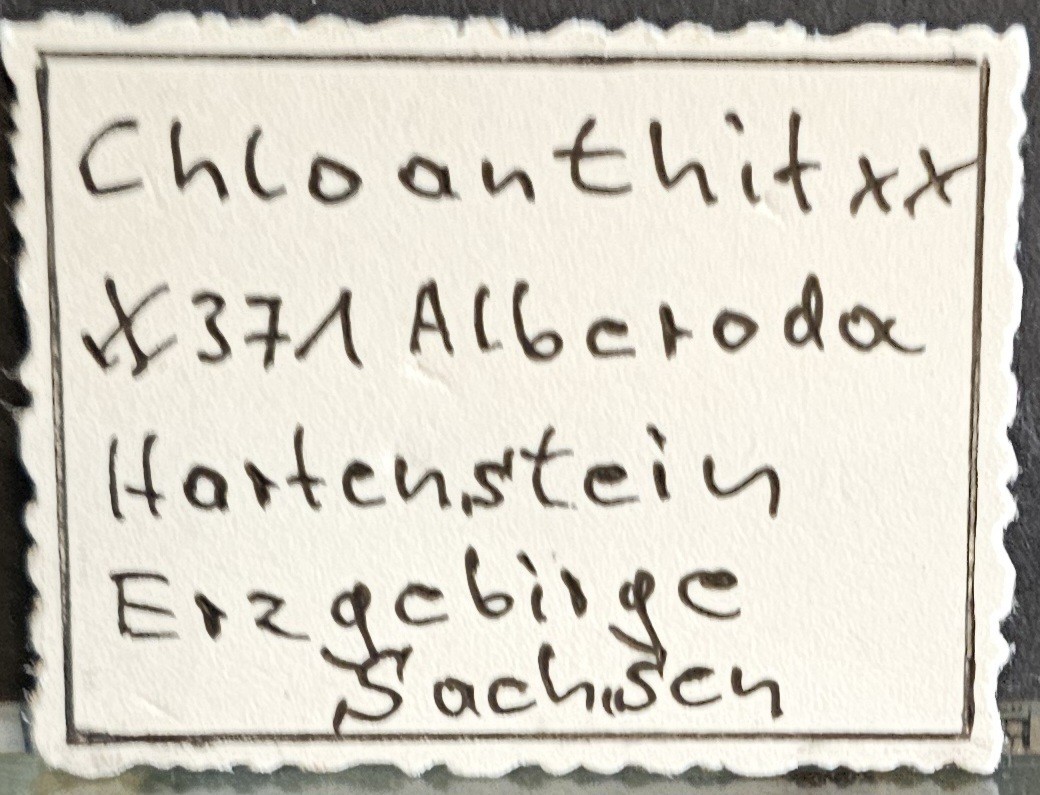 Chloanthit xx
X371 Alberoda
Hartenstein
Erzgebirge
Sachsen